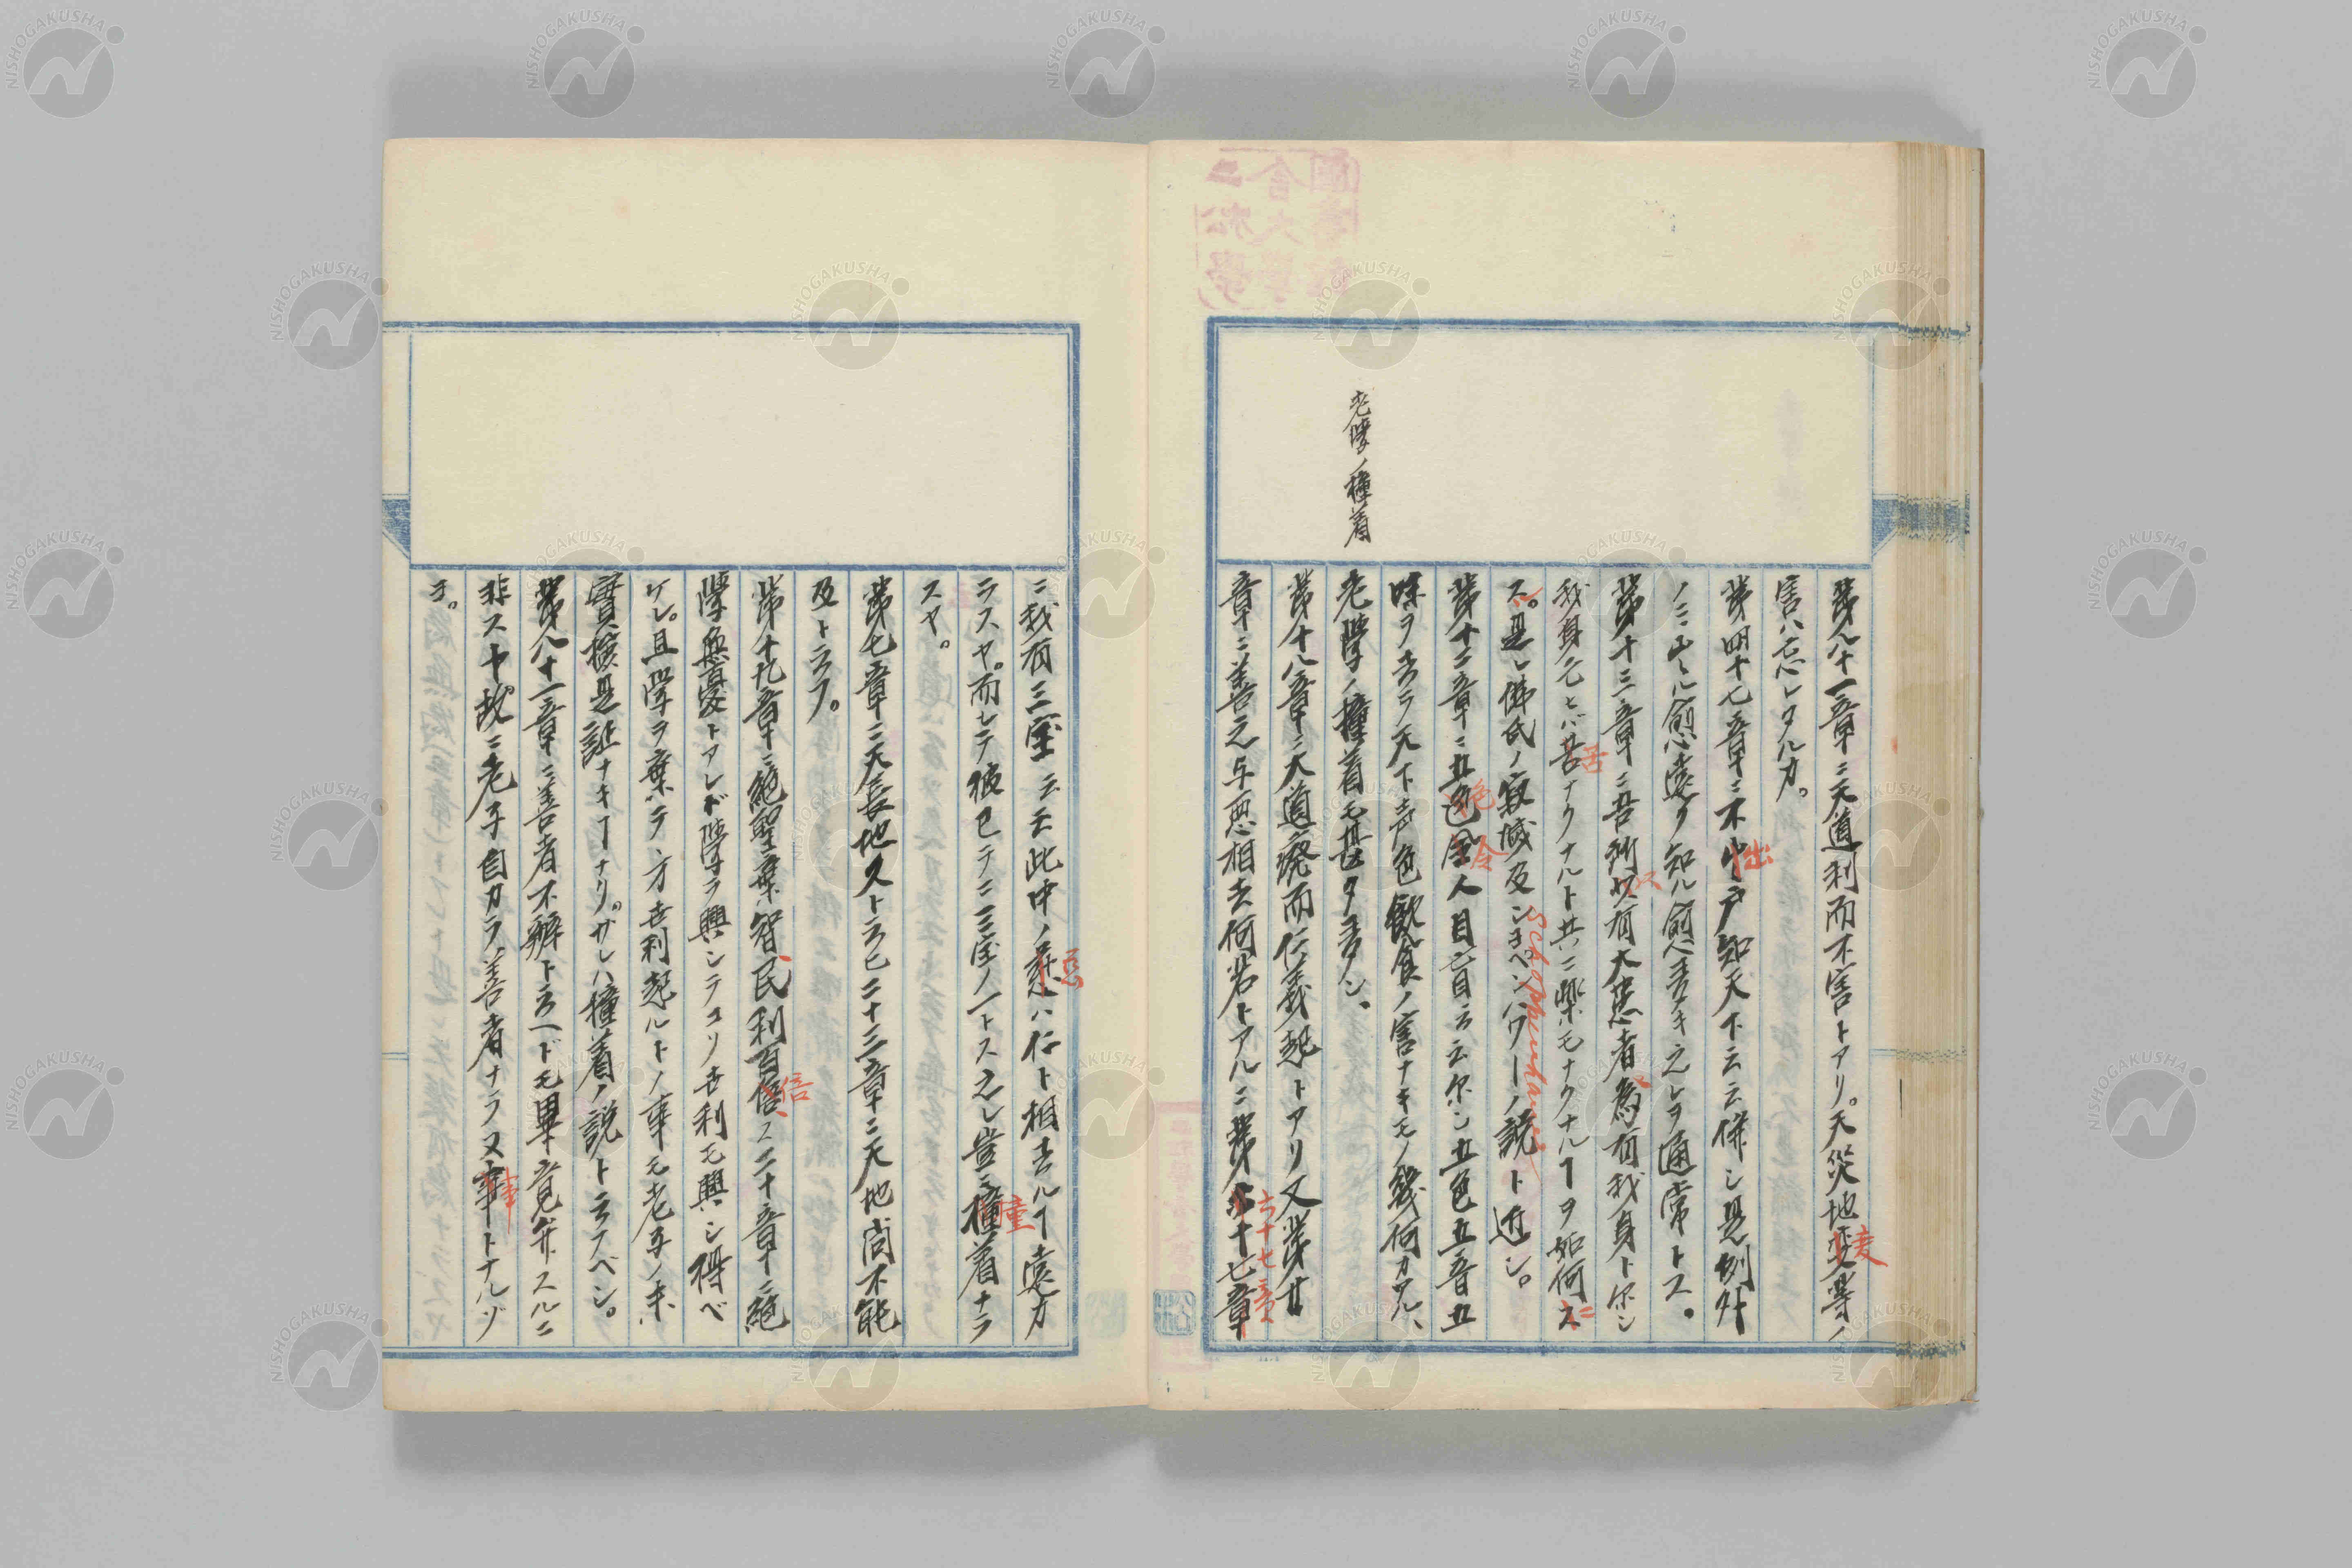 老学ノ撞着
第八十一章ニ天道利而不害トアリ。天災地変等ノ
害ハ忘レタルカ。
第四十七章ニ不出戸知天下云云併シ是例外
ノミ出ル愈遠ク知ル愈近キ之レヲ通常トス。
第十三章ニ吾所以有大患者為有我身ト尓シ
我身无ヒバ苦ナクナルト共ニ楽モナクナルヿヲ如何ニ
ス。是レ佛氏ノ寂滅及ショペンハワーノ説ト近シ。
Schopenhauer
第十二章ニ五色令人目盲云云尓シ五色五音五
味ヲ去ラ天下声色飲食ノ害ナキモノ幾何カアル、
老学ノ撞着モ甚タ多シ、
第十八章ニ大道廃而仁義起トアリ又第廿
章ニ善之与悪相去何若トアルニ第六十七章
六十七章
ニ我有三宝云云此中ノ慈ハ仁ト相去ルヿ遠カ
ラスヤ。而シテ彼已テニ三宝ノ一トス之レ豈ニ撞着ナラ
スヤ。
第七章ニ天長地久ト云ヒ二十三章ニ天地尚不能
及ト云フ。
第十九章ニ絶聖棄智民利百倍ス二十章ニ絶
学無憂トアレド学ヲ興シテコソ吉利モ興シ得ベ
ケレ。且学ヲ棄テ方吉利起ルトノ事モ老子ノ末、
實検是証ナキヿナリ。ガレハ撞着ノ説ト云フベシ。
第八十一章ニ善者不辨ト云ヘドモ畢竟弁スルニ
非スヤ故ニ老子自カラ善者ナラヌ事トナルゾ
ヨ。